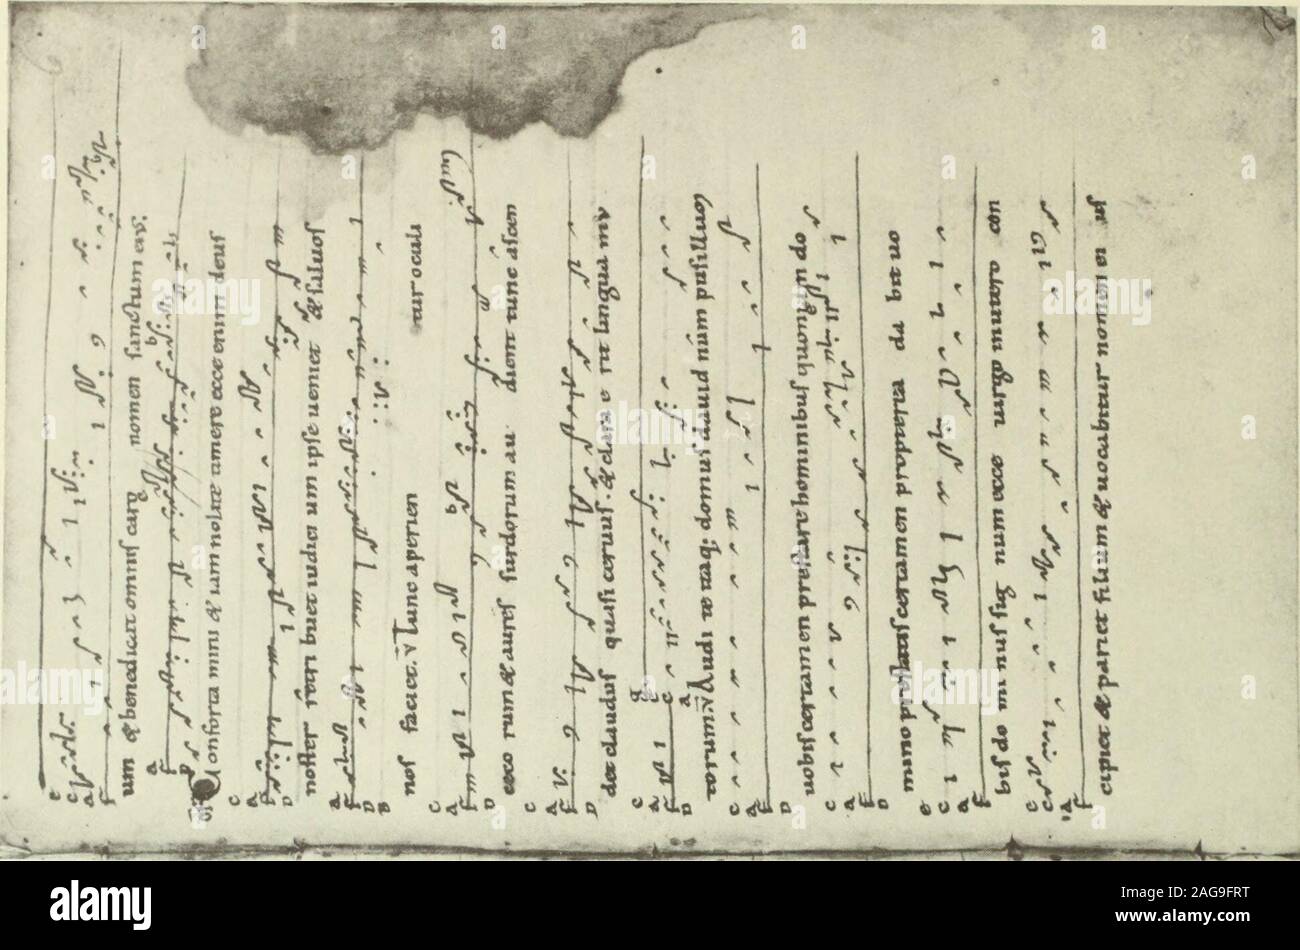 um & benedicat omnis caro nomen sanctum eius:
Conforta mini & iam nolite timere ecce enim deus
noster retri buet iudici um ipse ueniet & saluos
nos faciet. V Tunc aperien tur oculi
ceco rum & aures surdorum au dient tunc ascen
det claudus quasi ceruus. & clara e rit lingua mu
torum. V Audi te itaq; domus dauid num pusilluo
uobis certamen prestare hominibus quoniam do
mino prestatis certamen propterea da bit uo
bis do mi nus sig num ecce uirgo in utero con
cipiet & pariet filium & uocabitur nomen ei us
alamy
Image ID: 2AG9FRT
www.alamy.com